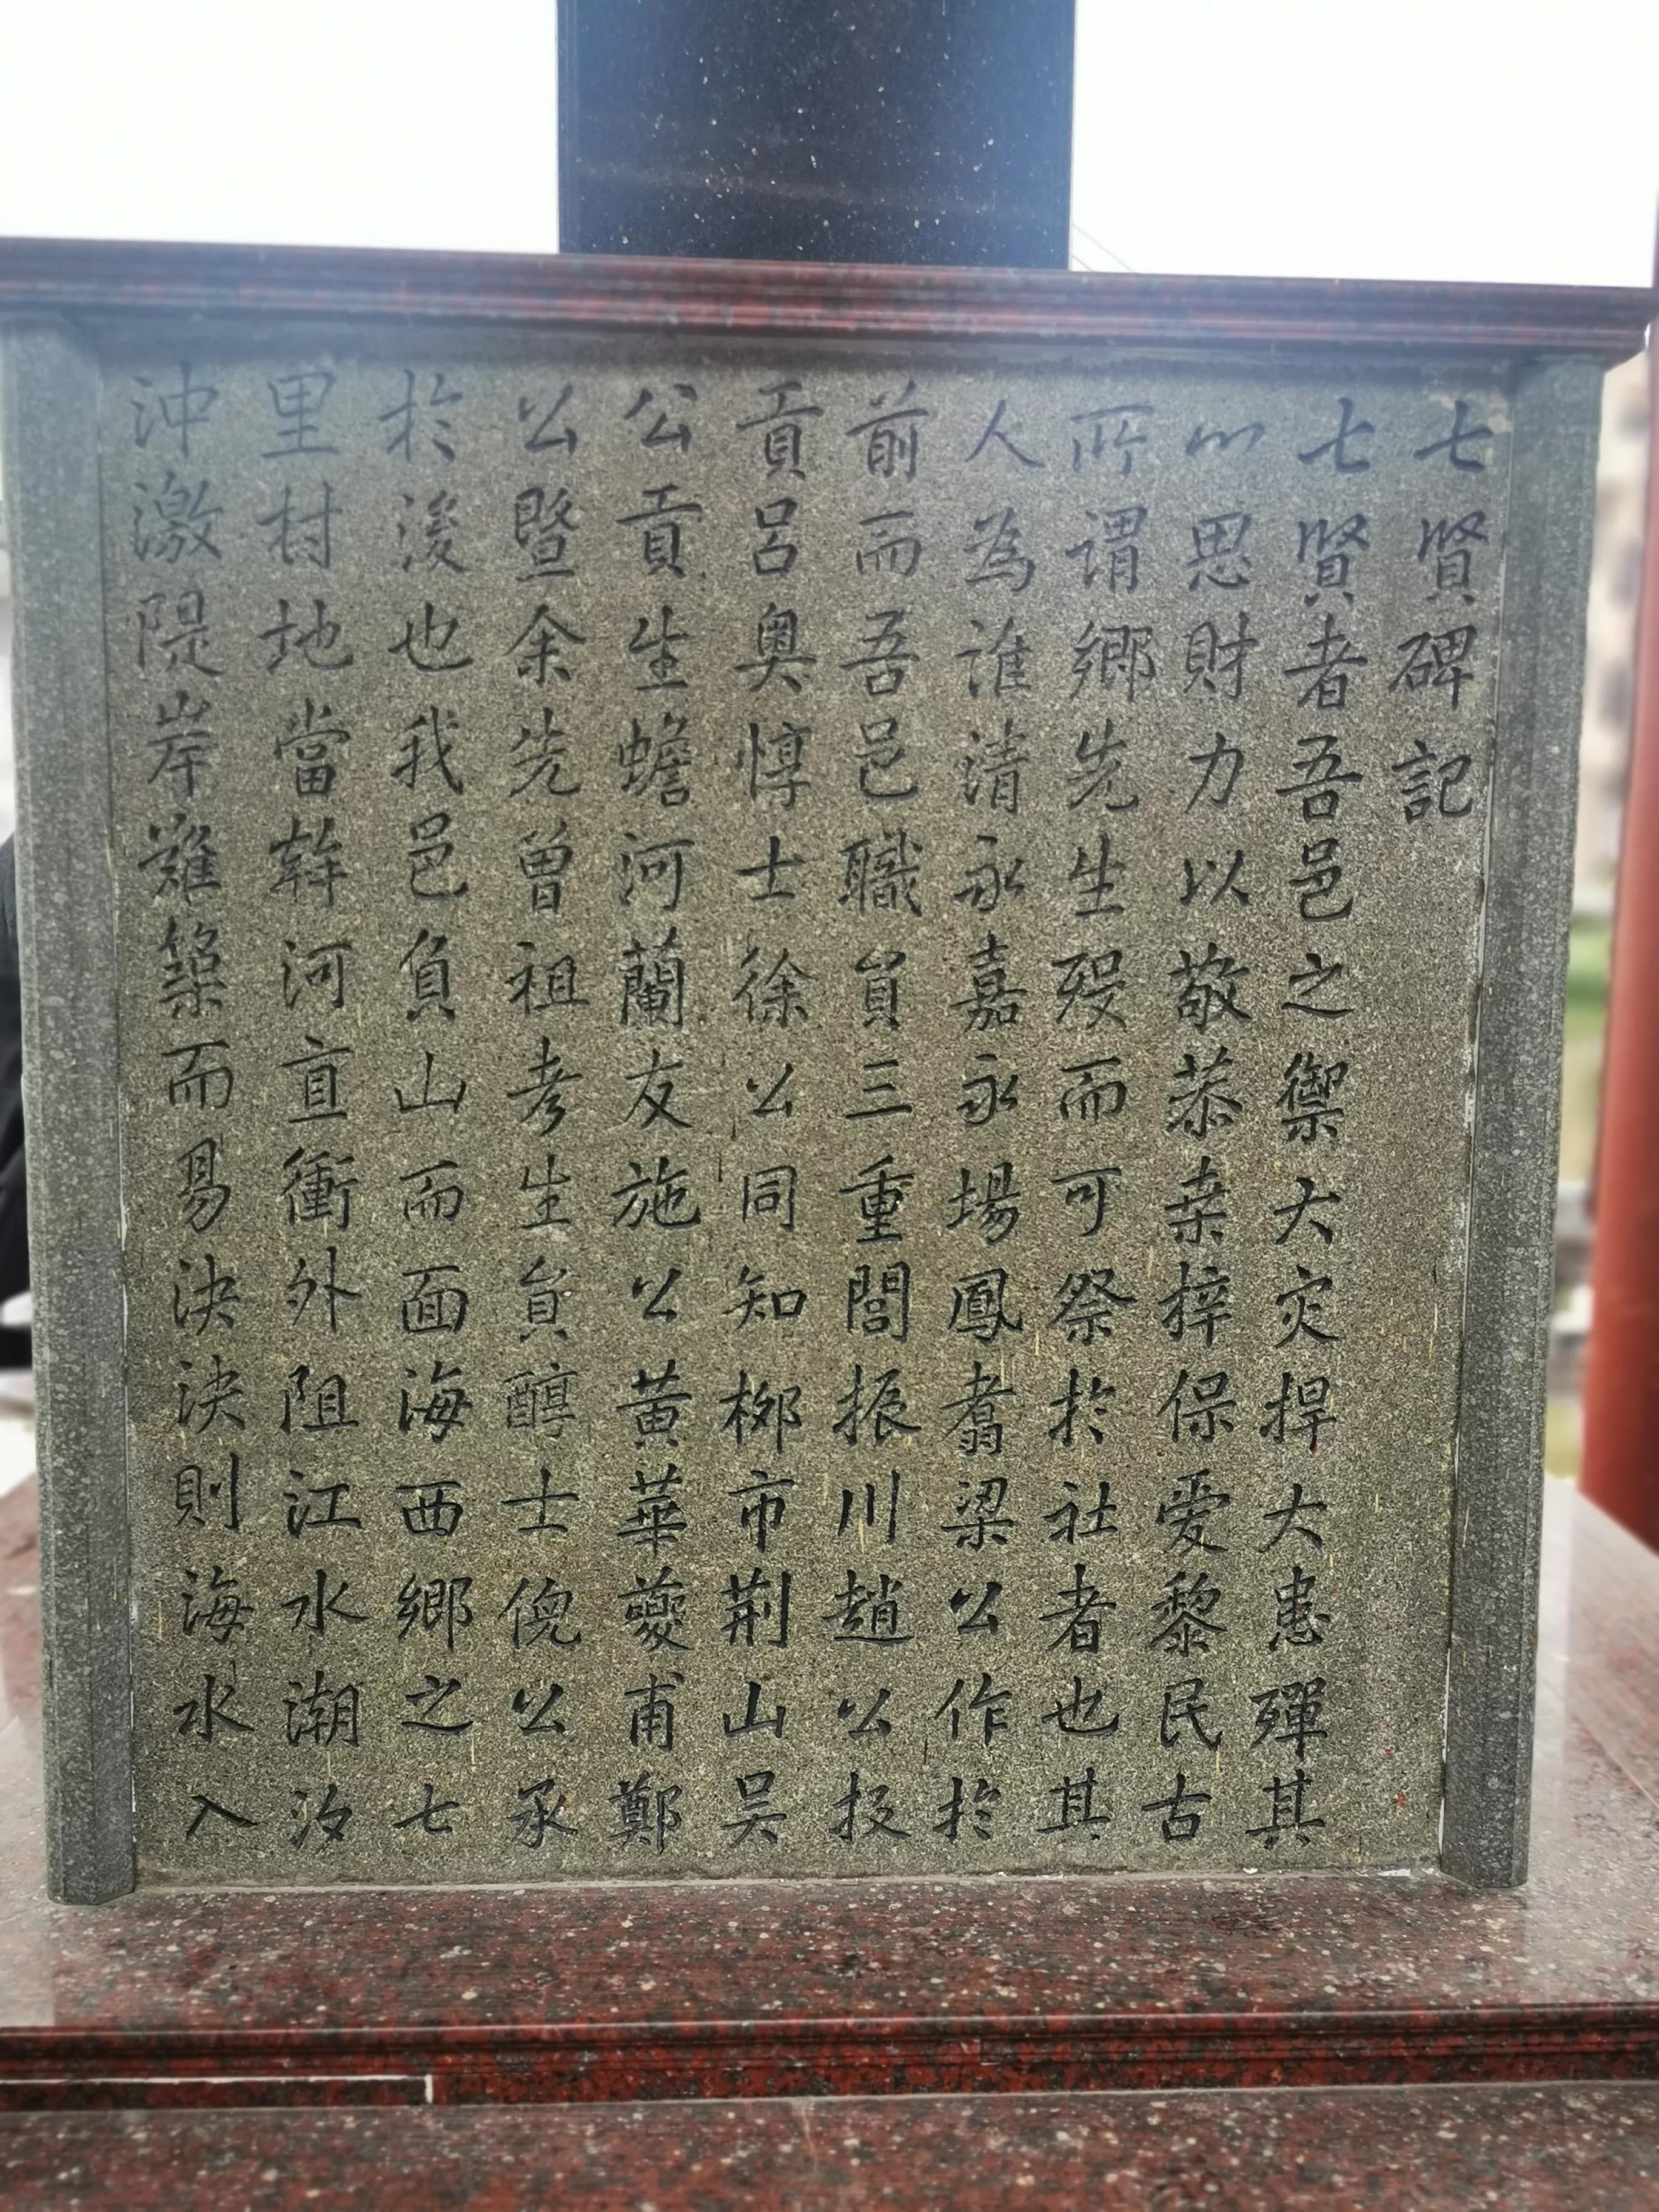 七賢碑記
七賢者吾邑之禦大灾捍大患殫其
心思財力以敬恭桒梓保爱黎民古
所謂鄉先生歿而可祭於社者也其
人為誰清永嘉永場鳳翥梁公作於
前而吾邑職貟三重閭振川趙公投
貢呂奥惇士徐公同知栁市荆山吴
公貢生蟾河蘭友施公黄華夔甫鄭
公暨余先曾祖考生貟醇士倪公承
於後也我邑負山而面海西鄉之七
里村地當幹河直衝外阻江水潮汐
沖激隄岸難築而易決決則海水入